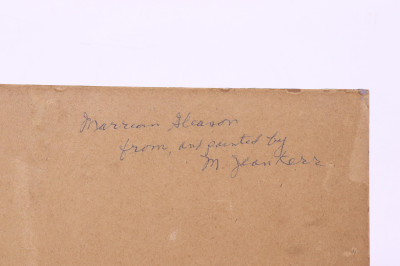 Marrion Gleason
from, and painted by
M. Jean Kerr